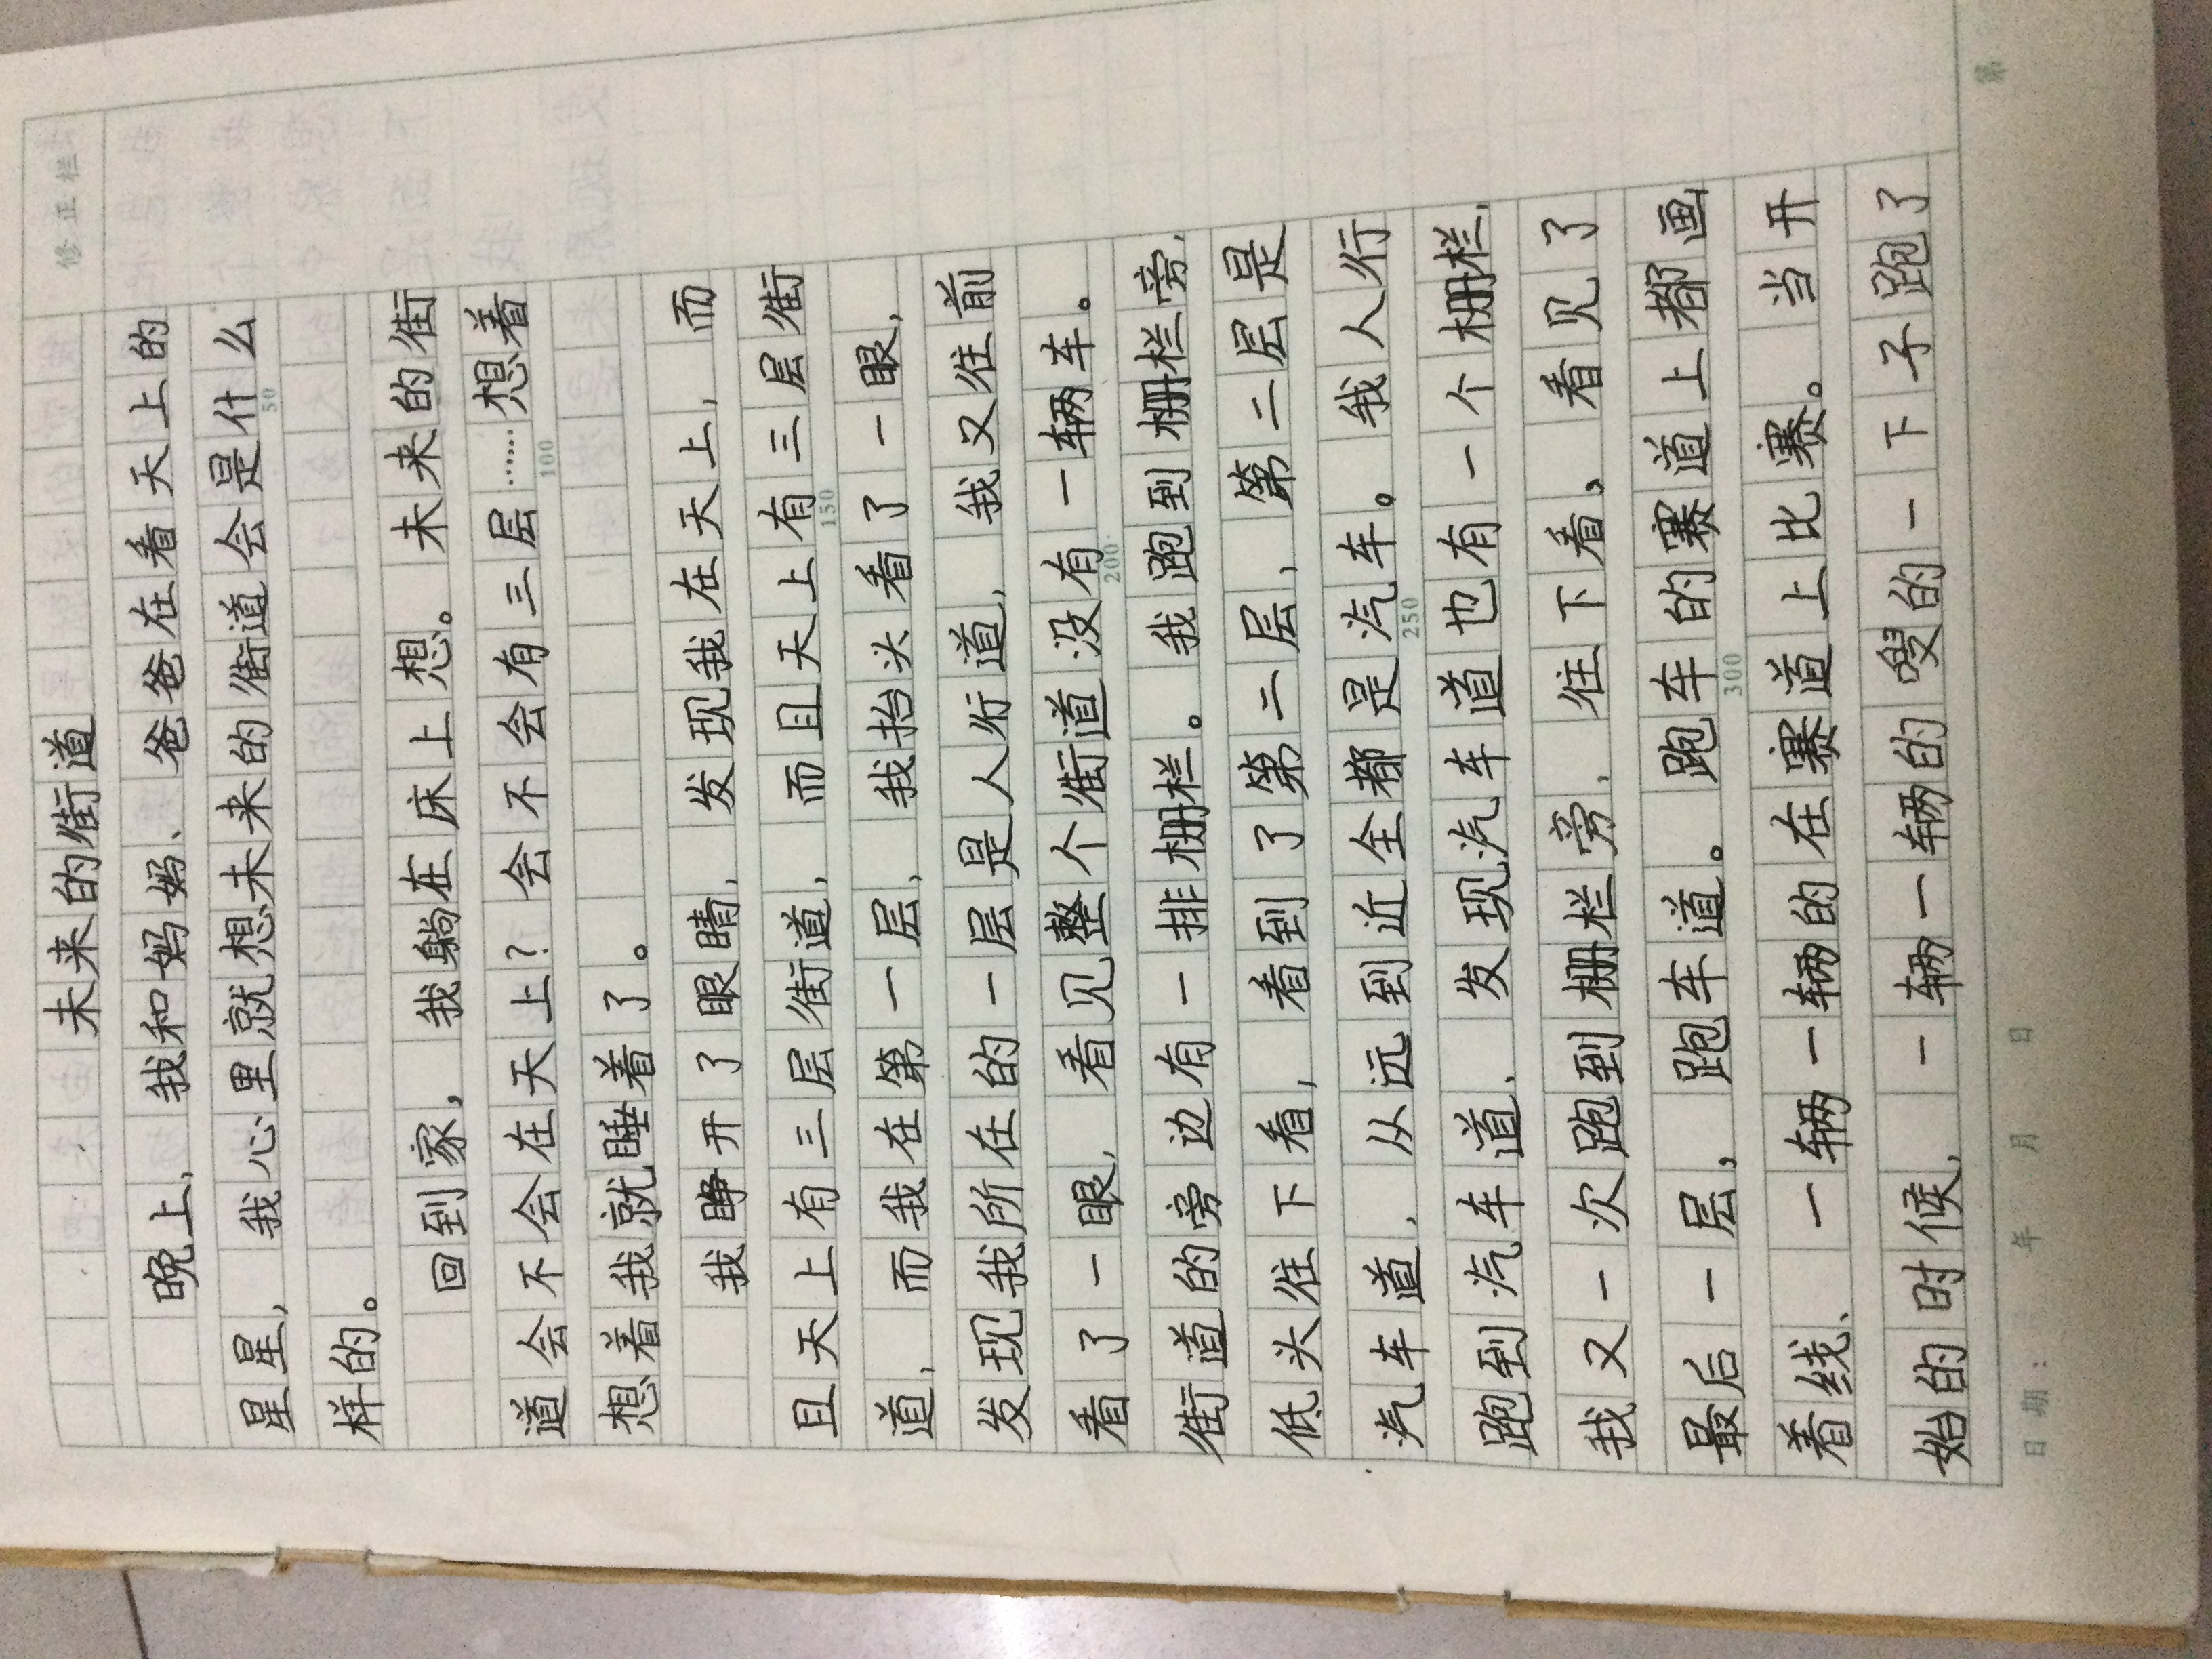 修正栏
未来的街道
晚上，我和妈妈、爸爸在看天上的
星星，我心里就想未来的街道会是什么
50
样的。
回到家，我躺在床上想。未来的街
道会不会在天上？会不会有三层……想着
100
想着我就睡着了。
我睁开了眼睛，发现我在天上，而
且天上有三层街道，而且天上有三层街
150
道，而我在第一层，我抬头看了一眼，
发现我所在的一层是人行道，我又往前
看了一眼，看见整个街道没有一辆车。
200
街道的旁边有一排栅栏。我跑到栅栏旁，
低头往下看，看到了第二层，第二层是
汽车道，从远到近全都是汽车。我人行
250
跑到汽车道，发现汽车道也有一个栅栏，
我又一次跑到栅栏旁，往下看，看见了
最后一层，跑车道。跑车的赛道上都画
300
着线、一辆一辆的在赛道上比赛。当开
始的时候，一辆一辆的嗖的一下子跑了
日期：年月日
第